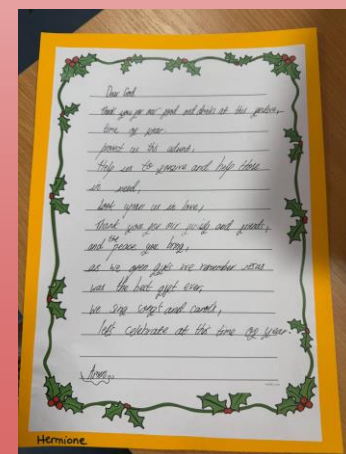 Dear God
Thank you for our food and drinks at this festive,
time of year.
protect us this advent,
Help us to forgive and help those
in need,
Look upon us in love,
Thank you for our family and friends,
and the peace you bring,
as we open gifts we remember Jesus
was the best gift ever,
we sing song's and carols,
let's celebrate at this time of year.
Amen.
Hermione